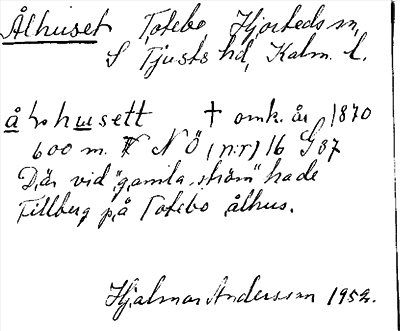 Ålhuset Totebo, Hjorteds sn,
S Tjusts hd, Kalm. l.
å'lɷhusett † omk. år 1870
600 m. V NÖ (nr) 16 G 87
Där vid "gamla ström" hade
Fillberg på Totebo ålhus.
Hjalmar Andersson 1952.